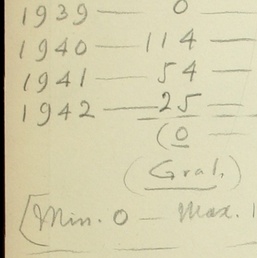 1939 — 0 —
1940 — 114 —
1941 — 54 —
1942 — 25 —
(0 —
(Gral.)
[Min. 0 — Max. 1